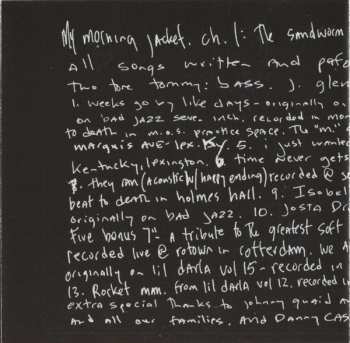 My morning jacket. ch. 1: The sandworm
All songs written and perfo
Two tone tommy: bass. J. glen
1. weeks go by like days - originally o
on bad jazz seven inch. recorded in mo
to death in m.o.s. practice space. The "m."
marquis ave - lex. Ky. 5. i just wanted
Kentucky, lexington. 6 time never gets
7. they ran (acoustic w/ happy ending) recorded @ s
beat to death in holmes hall. 9. Isobel
originally on bad jazz. 10. Josta Dr
Five bonus 7". a tribute to the greatest soft
recorded live @ rotown in rotterdam. we a
originally on lil darla vol 15 - recorded in
13. Rocket man. from lil darla vol 12. recorded in
extra special Thanks to johnny quaid a
and all our families. And Danny Cas